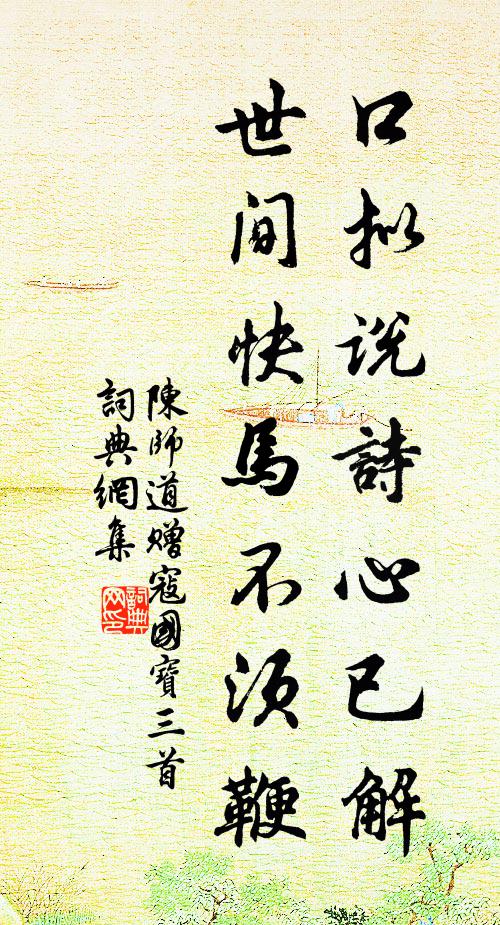 口拟説詩心已解
世间快馬不須鞭
陳師道赠寇國寶三首
詞典網集
詞典
网印